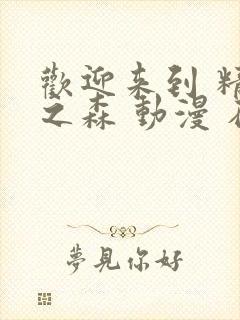 歡迎来到 精
之森 動漫 在
夢見你好